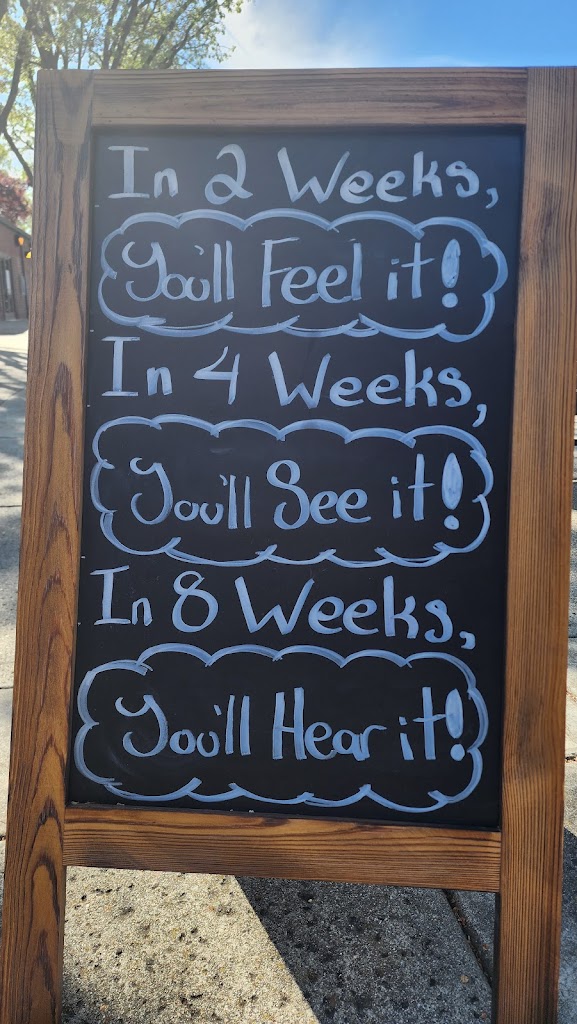 In 2 Weeks,
You'll Feel it!
In 4 Weeks,
You'll See it!
In 8 Weeks,
You'll Hear it!